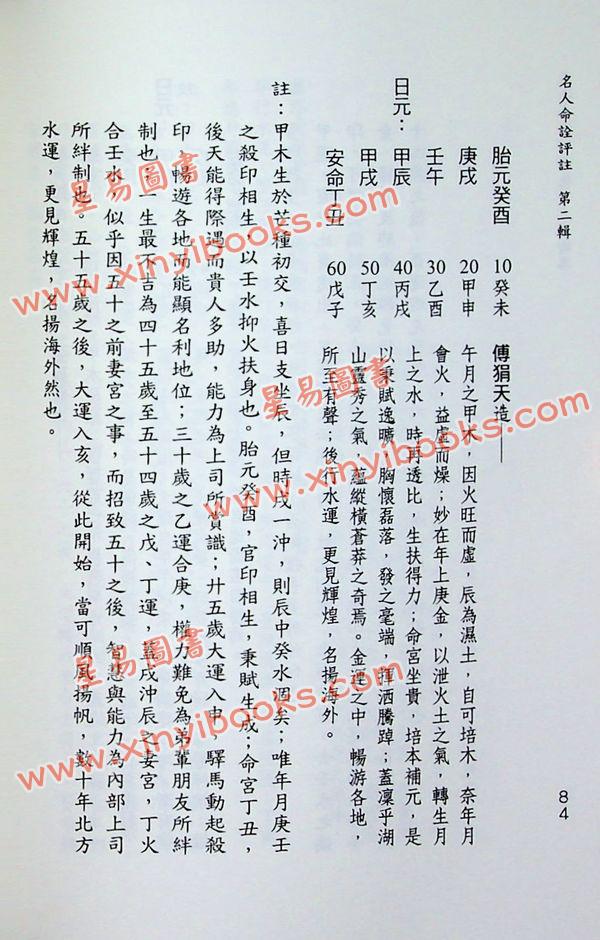 名人命詮評註 第二輯
84
胎元癸酉
庚戌
壬午
日元：甲辰
甲戌
安命丁丑
10癸未
20甲申
30乙酉
40丙戌
50丁亥
60戊子
傅狷天造——
午月之甲木，因火旺而虛，辰為濕土，自可培木，奈年月
會火，益虛而燥；妙在年上庚金，以泄火土之氣，轉生月
上之水，時再透比，生扶得力；命宮坐貴，培本補元，是
以秉賦逸曠，胸懷磊落，發之毫端，揮洒騰踔；蓋凜乎湖
山靈秀之氣，蘊縱橫蒼莽之奇焉。金運之中，暢游各地，
所至有聲；後行水運，更見輝煌，名揚海外。
註：甲木生於芒種初交，喜日支坐辰，但時戌一沖，則辰中癸水涸矣；唯年月庚壬
之殺印相生，以壬水抑火扶身也。胎元癸酉，官印相生，秉賦生成；命宮丁丑，
後天能得際遇而貴人多助，能力為上司所賞識；廿五歲大運入申，驛馬動起殺
印，暢遊各地而能顯名利地位；三十歲之乙運合庚，權力難免為弟輩朋友所絆
制也；一生最不吉為四十五歲至五十四歲之戌、丁運，蓋戌沖辰之妻宮，丁火
合壬水，似乎因五十之前妻宮之事，而招致五十之後，智慧與能力為內部上司
所絆制也。五十五歲之後，大運入亥，從此開始，當可順風揚帆，數十年北方
水運，更見輝煌，名揚海外然也。
星易圖書
www.xinyibooks.com
星易圖書
www.xinyibooks.com
星易圖書
www.xinyibooks.com
星易圖書
www.xinyibooks.com